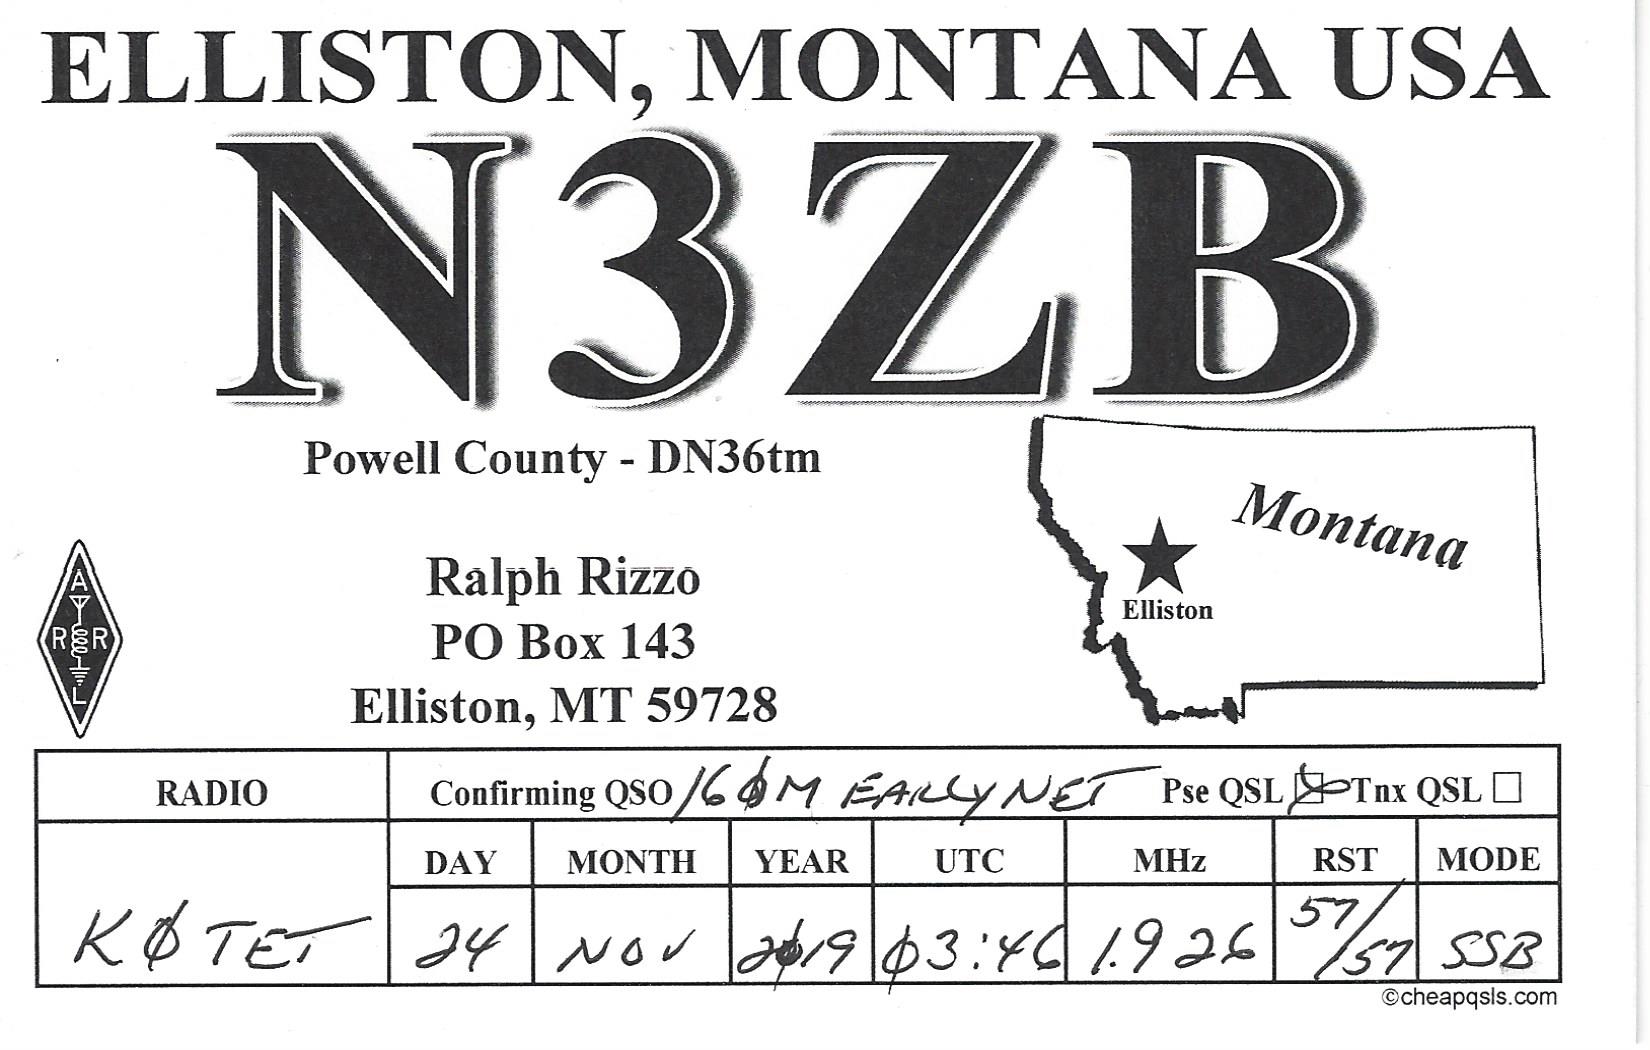 ELLISTON, MONTANA USA
N3ZB
Powell County - DN36tm
Montana
Elliston
A
R R
L
Ralph Rizzo
PO Box 143
Elliston, MT 59728
RADIO Confirming QSO 16ØM EARLY NET Pse QSL ☒ Tnx QSL ☐
DAY MONTH YEAR UTC MHz RST MODE
KØTET 24 NOV 2Ø19 Ø3:46 1.926 57/57 SSB
©cheapqsls.com